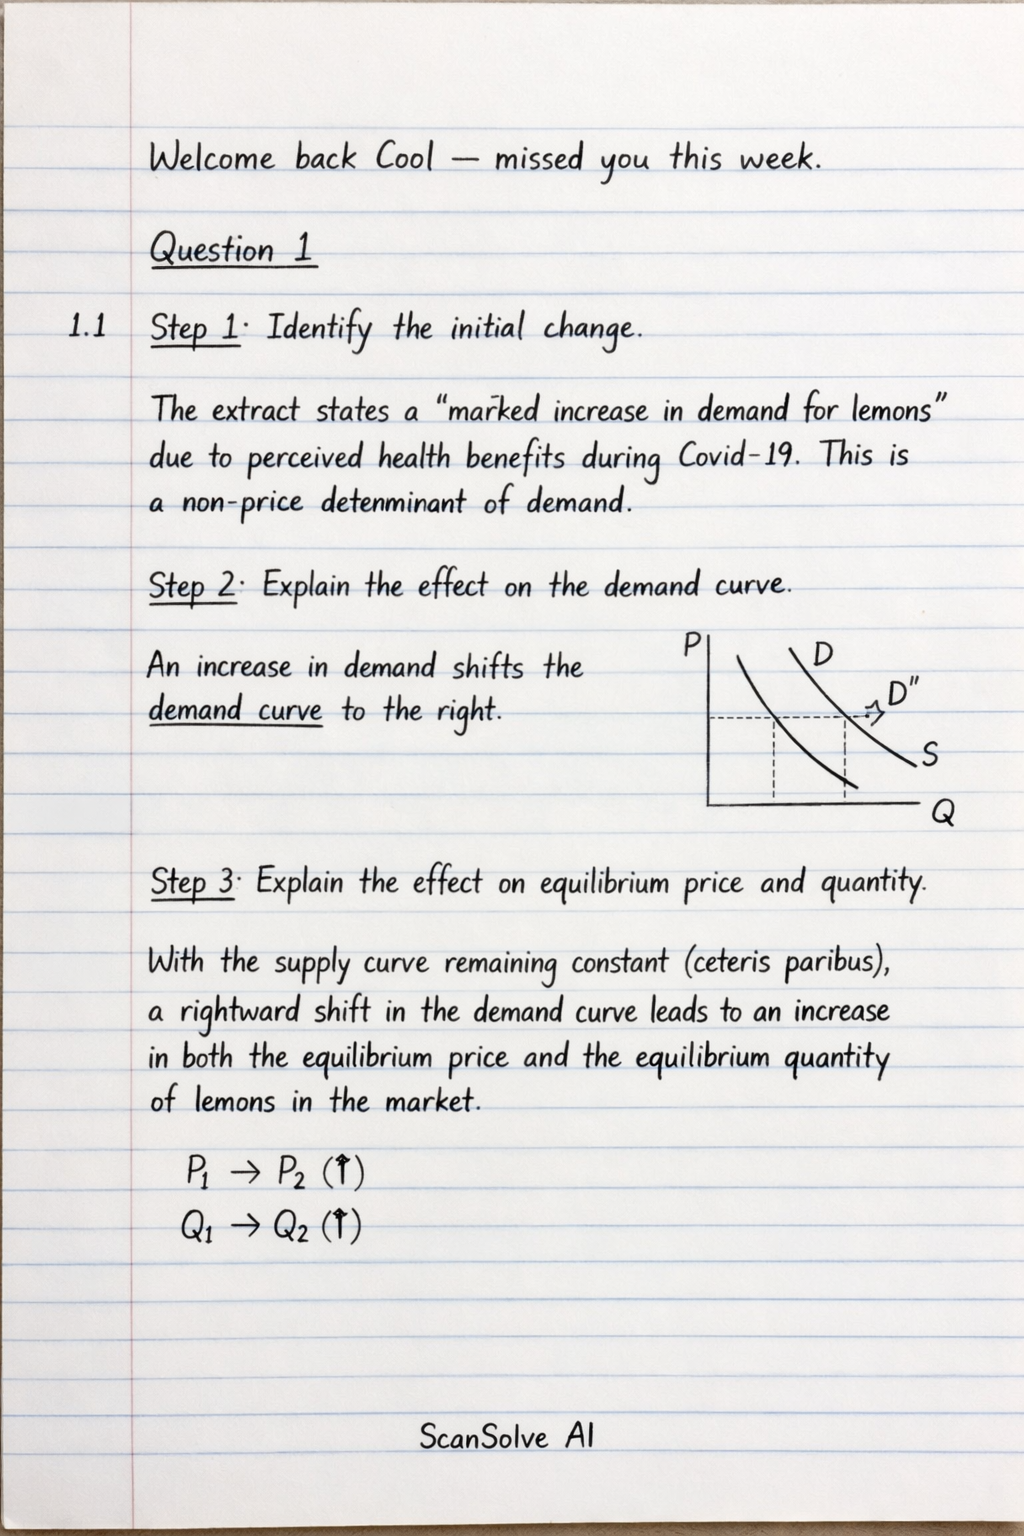 Welcome back Cool — missed you this week.
Question 1
1.1 Step 1: Identify the initial change.
The extract states a “marked increase in demand for lemons”
due to perceived health benefits during Covid-19. This is
a non-price detenminant of demand.
Step 2: Explain the effect on the demand curve.
An increase in demand shifts the
demand curve to the right.
P
D
D"
S
Q
Step 3: Explain the effect on equilibrium price and quantity.
With the supply curve remaining constant (ceteris paribus),
a rightward shift in the demand curve leads to an increase
in both the equilibrium price and the equilibrium quantity
of lemons in the market.
P₁ → P₂ (↑)
Q₁ → Q₂ (↑)
ScanSolve AI